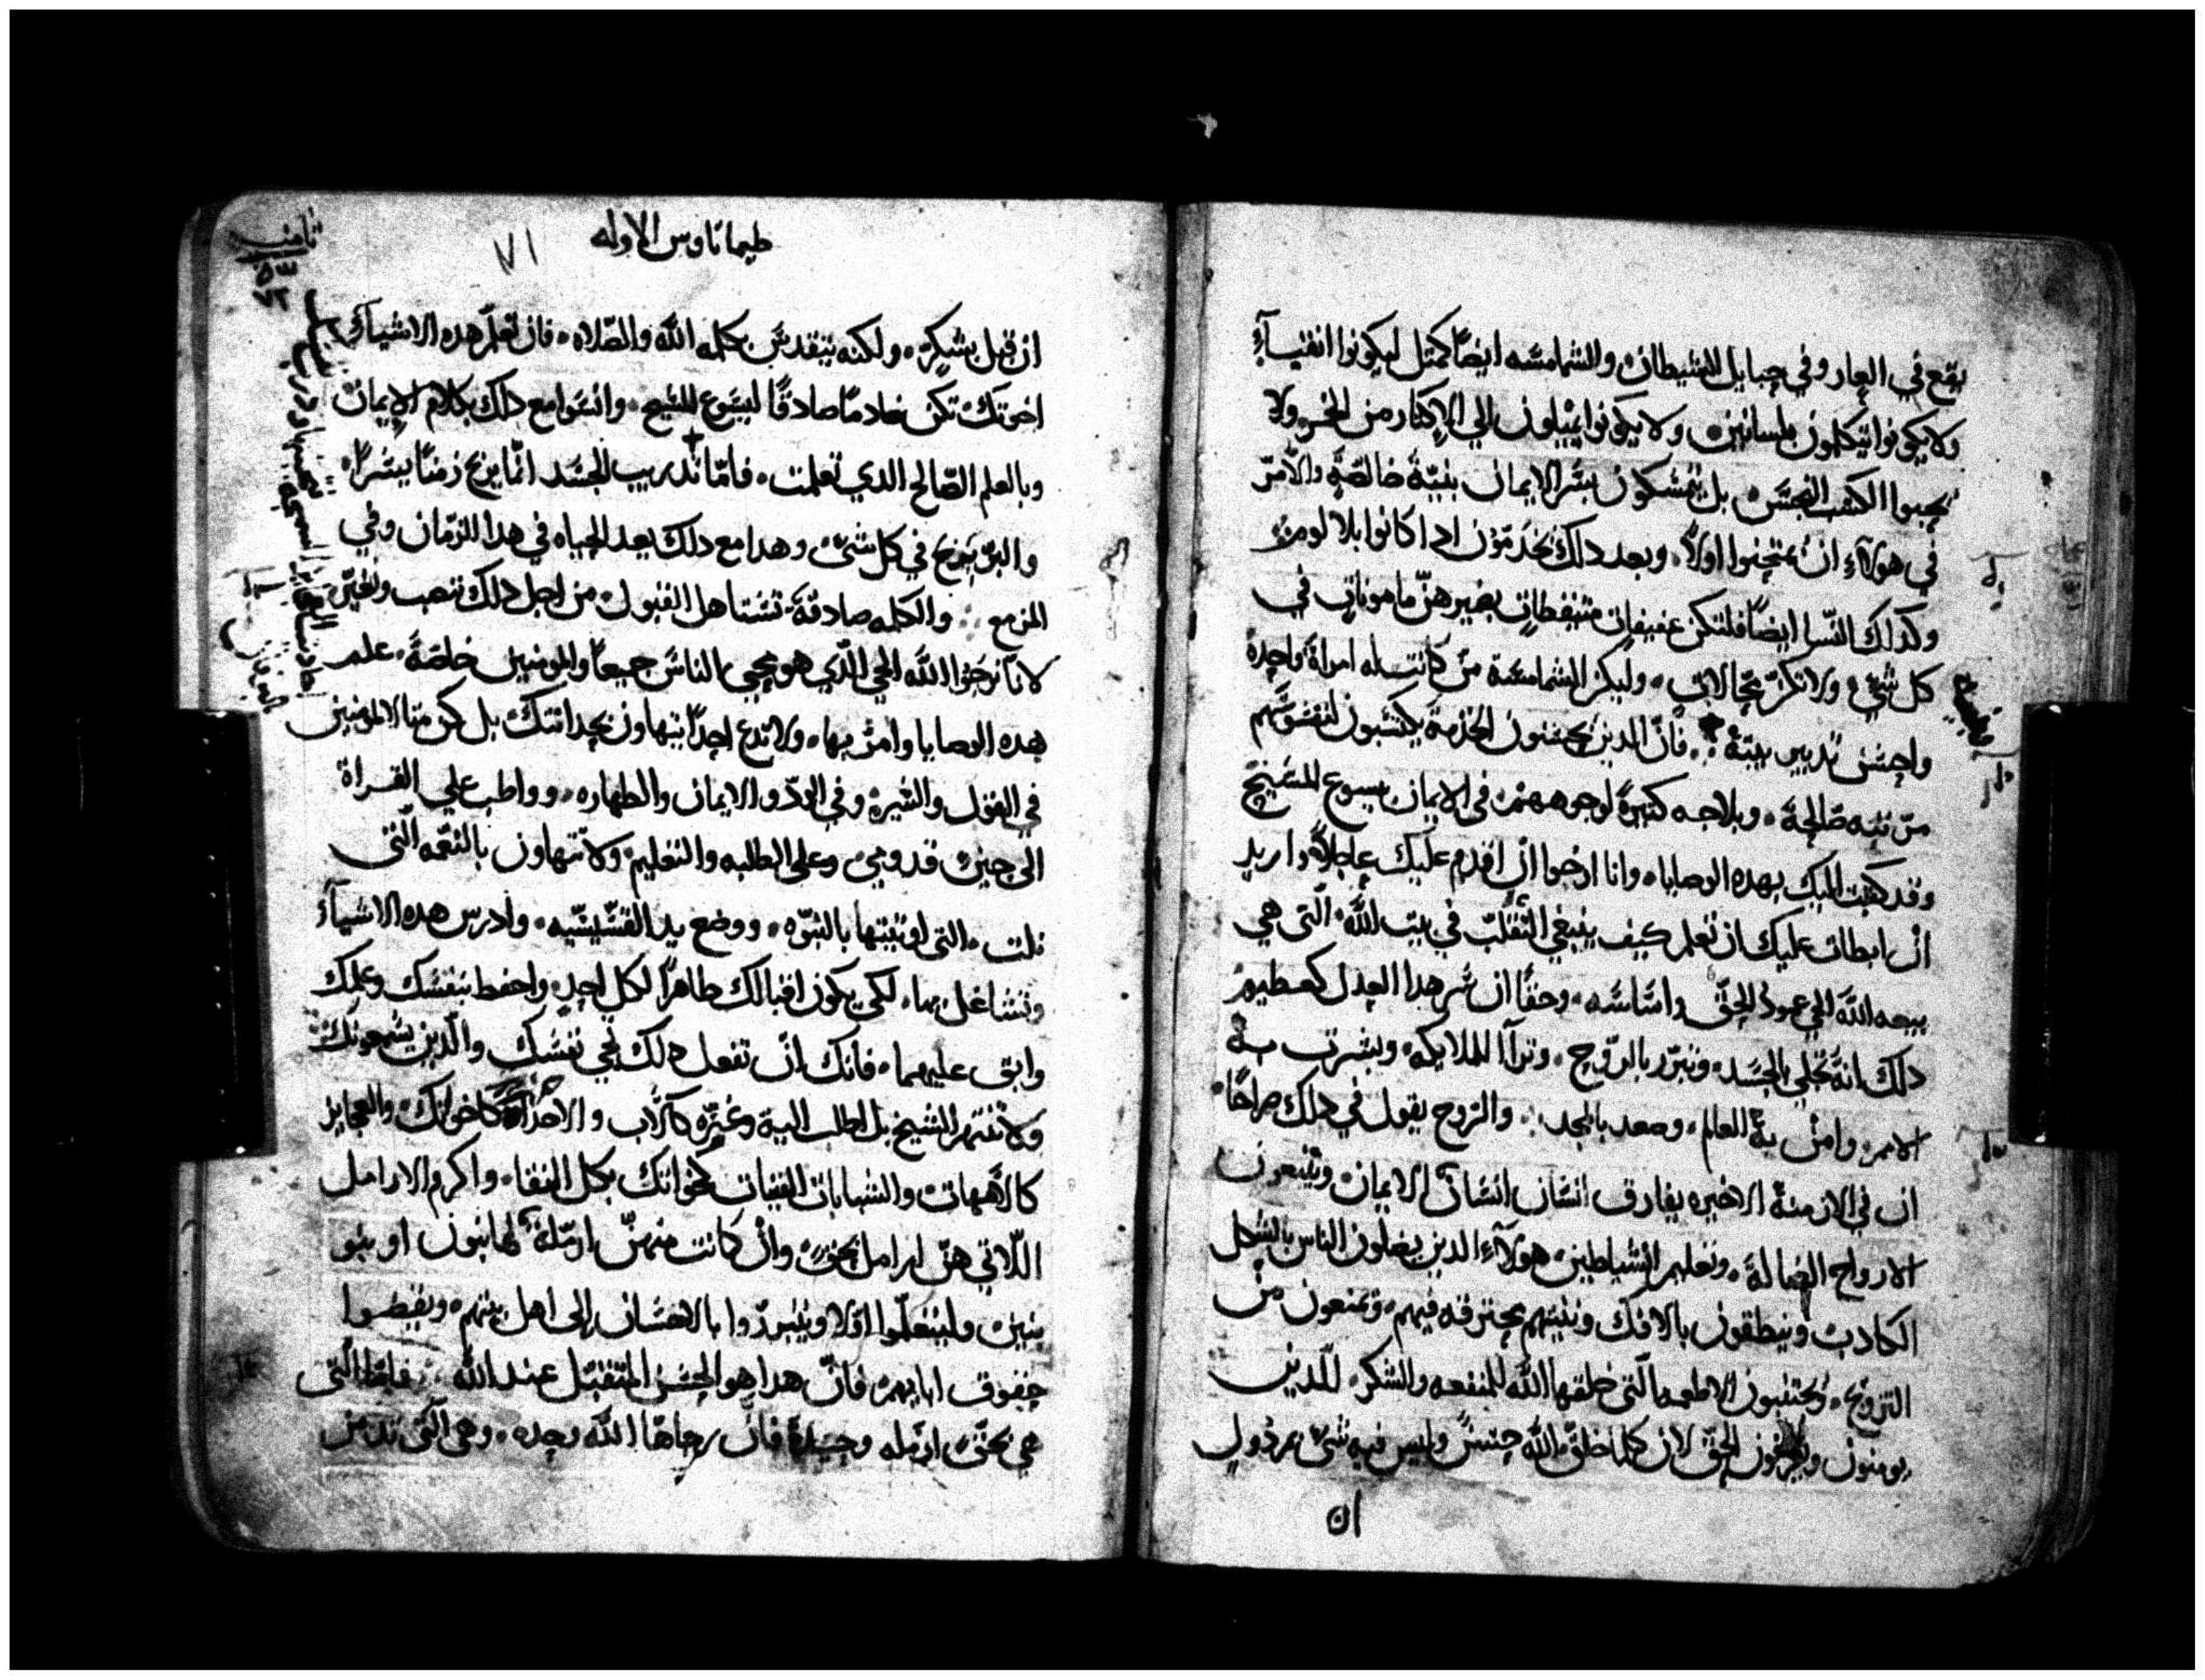 يقع في العار وفي حبايل الشيطان والشمامسه ايضًا كمثل ليكونوا انقيآءٍ
ولا يكونوا يتكلمون بلسانين ولا يكونوا يميلون الي الاكثار من الخمر ولا
يحبوا الكسب النجس بل يتمسكون بسّر الايمان بنيّة خالصّةٍ والأمرّ
في هولآءِ ان يمتحنوا اولاً وبعد دلك يخدمّون ادا كانوا بلا لومٍ
وكدلك النّسا ايضًا فلتكن عفيفاتٍ متيقظاتٍ بضميرهنّ مامونات في
كل شيٍّ ولا تكنّ محّالات وليكن الشمامسة من كانت له امراة واحدة
واحسن تدبير بيتهُ فانّ الدين يحسنون الخدمة يكتسبون لنفوسّهم
مرتبه صّالحةً وبلاجه كثيرةً لوجوههم في الايمان بيسوع المسّيح
وقد كتبت اليك بهده الوصايا وانا ارجوا انّ اقدم عليك عاجلاً واريد
انّ ابطات عليك ان تعلم كيف ينبغي التّقلّب في بيت اللّه الّتي هي
بيعه اللّه الحي عمود الحقّ واسّاسّه وحقًا ان سّر هدا العدل كعظيم
دلك انهُ تجلي بالجسّد وتبرّر بالرّوح وترآا للملايكه وبشرت به
الامم وامن بهِ العالم وصعد بالمجد والرّوح يقول في دلك صراحًا
ان في الازمنة الاخيره يفارق انسّان انسّان الايمان ويتبعون
الارواح الضالة وتعليم الشياطين هولآءِ الدين يضلون الناس بالشكل
الكادب وينطقون بالافك ونيتهم محترقه فيهم ويمنعون من
التزويج ويجتنبون الاطعمه الّتي خلقها اللّه للمنفعه والشكر للّدين
يومنون ويعرفون الحقّ لان كلما خلق اللّه حسّنٌ وليس فيه شيٌ مرذولٍ
ان
طيماتاوس الاوله
٧١
ان قبل بشكرٍ ولكنه يتقدسّ بكلمه اللّه والصّلاه فان تعلّم هده الاشيآءَ
اخوتكَ تكن خادمًا صادقًا ليسّوع المسّيح وانشّوا مع دلك بكلام الايمان
وبالعلم الصّالح الدي تعلمت فامّا تدريب الجسّد انّما يربح زمنًا يسّرًا
والبرّ يربح في كل شيٍّ وهدا مع دلك يعد الحياه في هدا الزّمان وفي
المزمع والكلمه صادقةً تسّتاهل القبول من اجل دلك نتعب ونعيّر
لانّا نرجوا اللّه الحي الّدي هو محيي الناسّ جميعاً والمومنين خاصّةً علم
هده الوصايا وامرّ بها ولا تدع احدًا يتهاون بحداثتك بل كن متالا للمومنين
في القول والسّيرة وفي الودّ والايمان والطهاره وواطب علي القراة
الي حين قدومي وعلي الطلبه والتعليم ولا تتهاون بالنعّمه الّتي
نلت التي اوتيتها بالنبّوه ووضع يد القسّيسّيه وادرس هده الاشيآءَ
وتشاغل بها لكي يكون اقبالك ظاهراً لكل احدٍ واحفظ بنفسّك وعلمك
وابق عليهما فانك انّ تفعل دلك تحي نفسّك والّدين يسّمعونك
ولا تنتهر الشيخ بل اطلب اليه وعزّه كالاب والاحداث كاخوتك والعجايز
كالامّهات والشابات الفتيات كخواتك بكل النقا واكرم الارامل
اللّاتي هنّ ارامل بحقٍ وانّ كانت منهنّ ارمّلة لها بنون او بنو
بنين وليتعلّموا اوّلا ويتبرّروا بالاحسّان الى اهل بيتهم ويقضوا
حقوق ابايهم فانّ هدا هو الحسّن المتقبّل عند اللّه فامّا الّتي
هي بحقٍّ ارمّله وحيدة فانّ رجاها اللّه وحده وهي الّتي تدمن